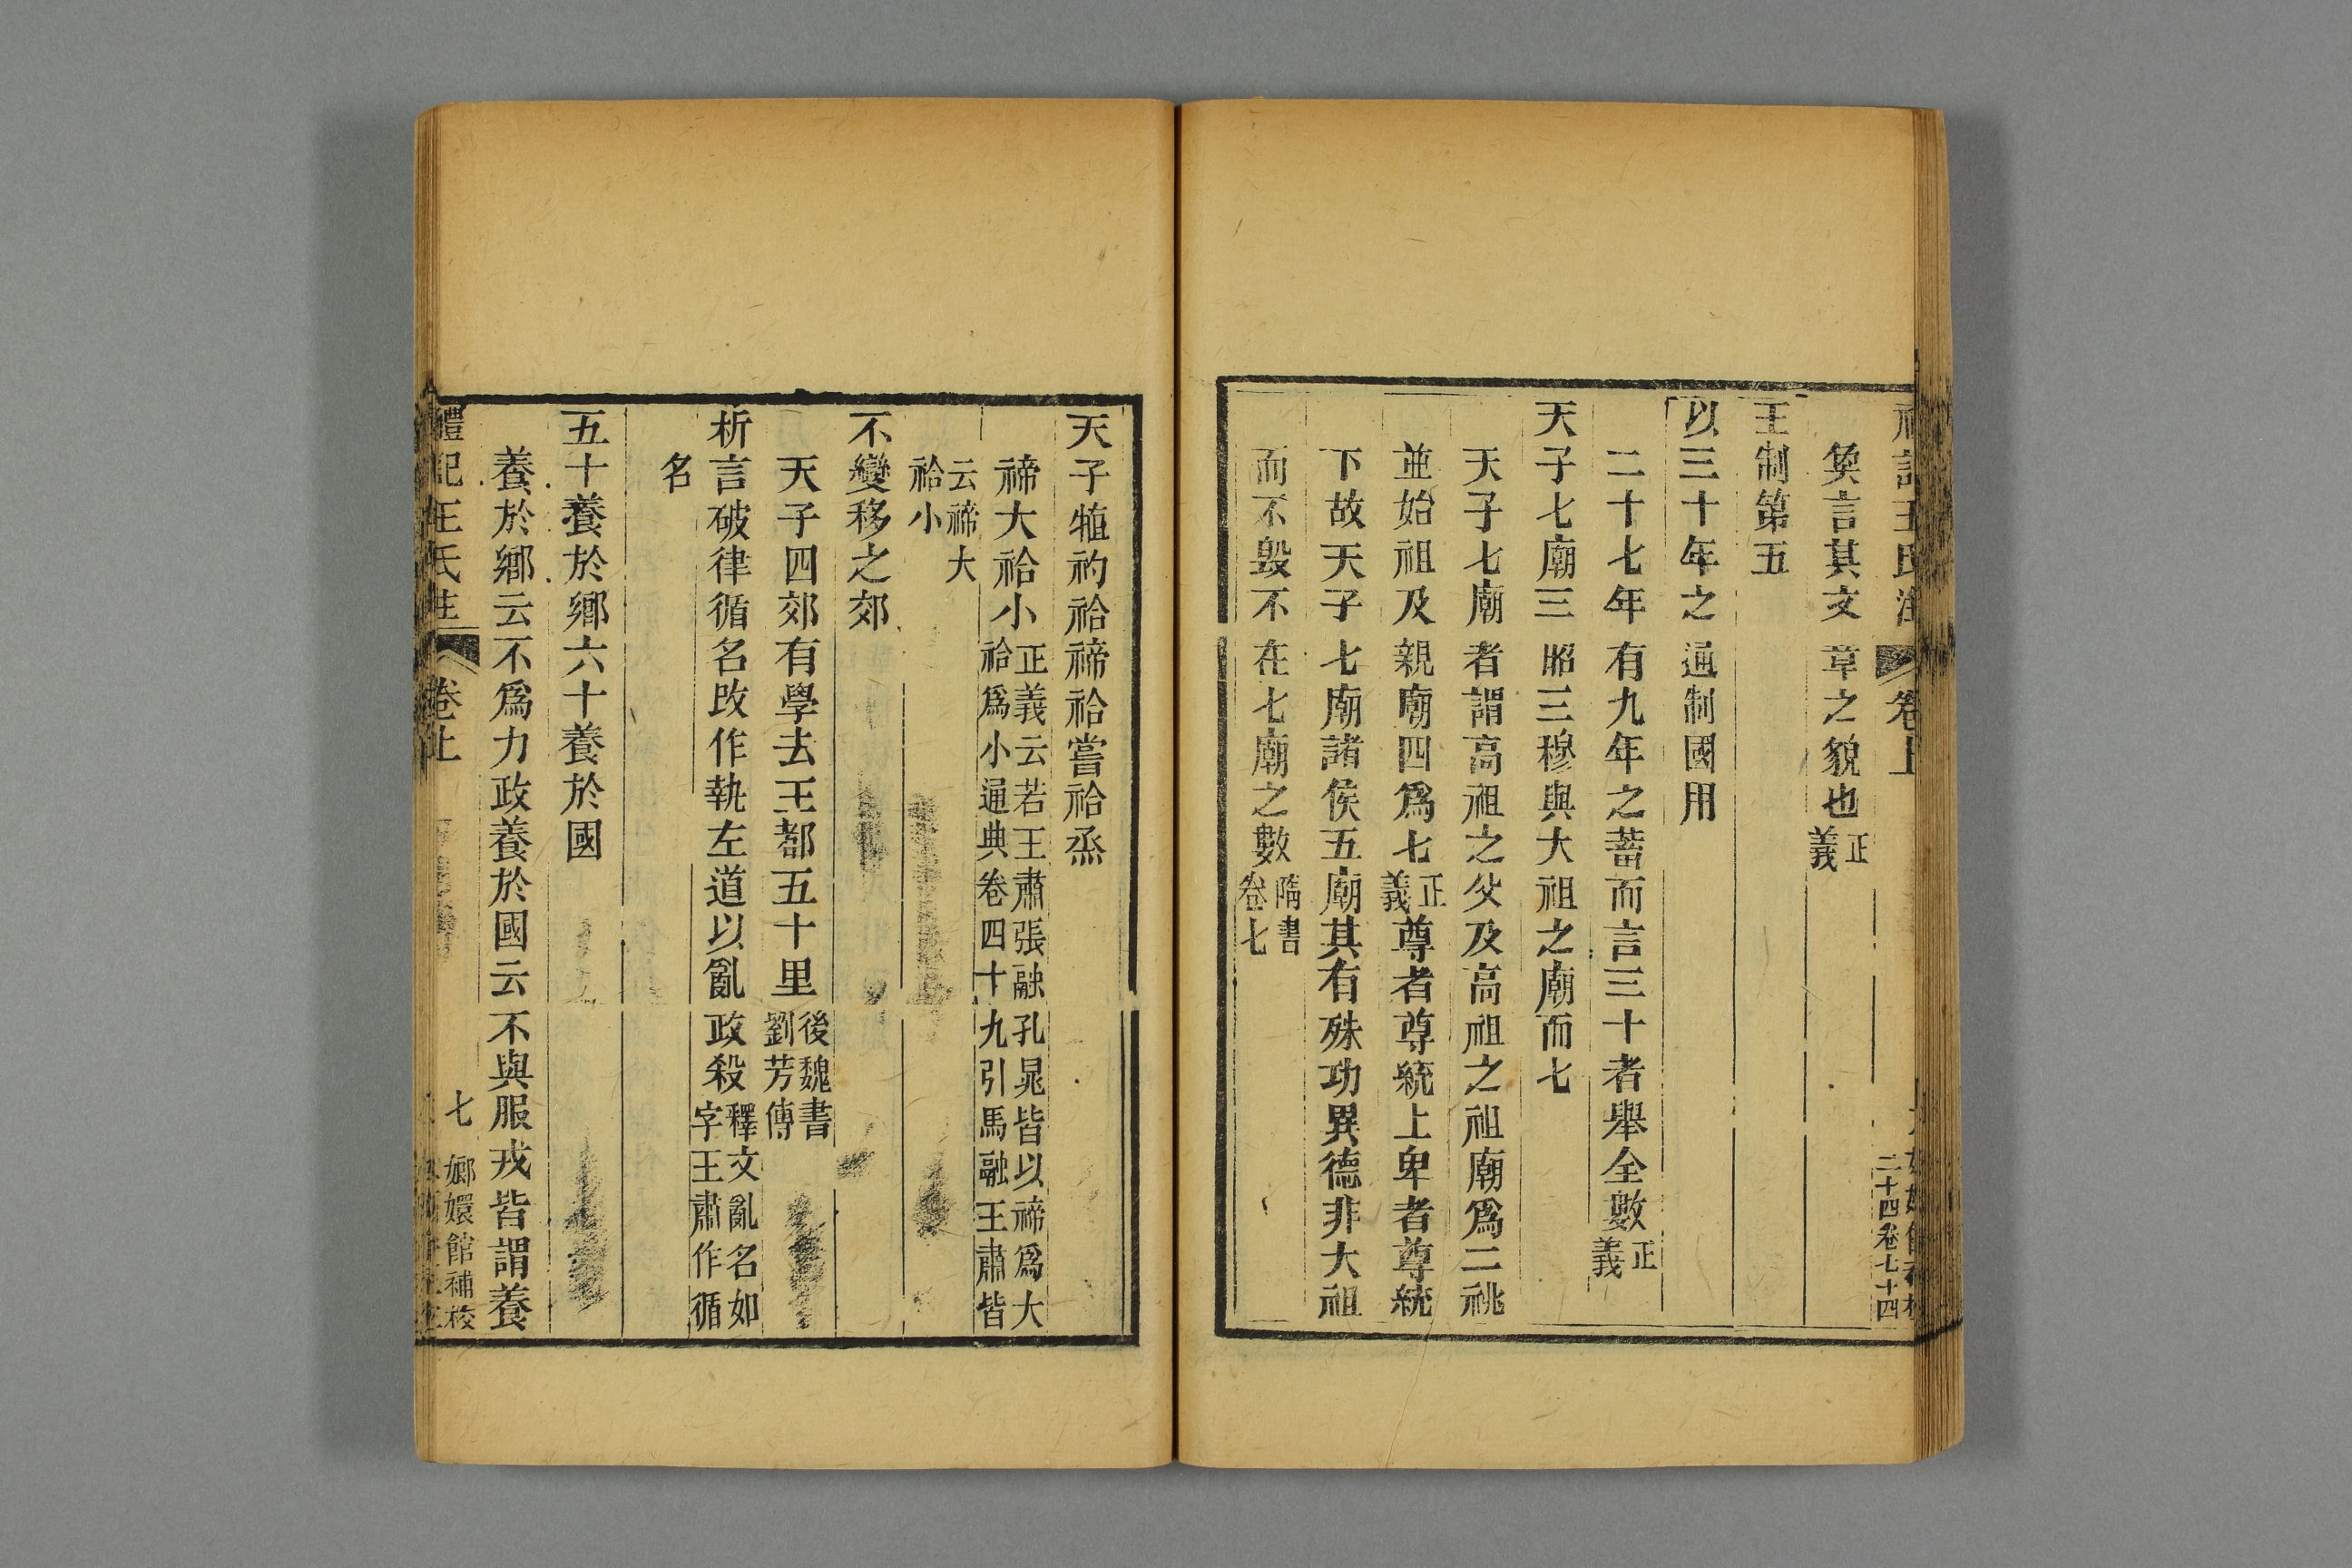 禮記王氏注 卷上
二十四卷七十四
奐言其文章之貌也正義
王制第五
以三十年之通制國用
二十七年有九年之蓄而言三十者舉全數正義
天子七廟三昭三穆與大祖之廟而七
天子七廟者謂高祖之父及高祖之祖廟爲二祧
並始祖及親廟四爲七正義尊者尊統上卑者尊統
下故天子七廟諸侯五廟其有殊功異德非大祖
而不毀不在七廟之數隋書卷七
天子犆礿祫禘祫嘗祫烝
禘大祫小正義云若王肅張融孔晁皆以禘爲大
祫爲小通典卷四十九引馬融王肅皆
云禘大
祫小
不變移之郊
天子四郊有學去王都五十里後魏書劉芳傳
析言破律循名改作執左道以亂政殺釋文亂名如
字王肅作循
名
五十養於鄉六十養於國
養於鄉云不爲力政養於國云不與服戎皆謂養
禮記王氏注 卷上
七 嫏嬛館補校